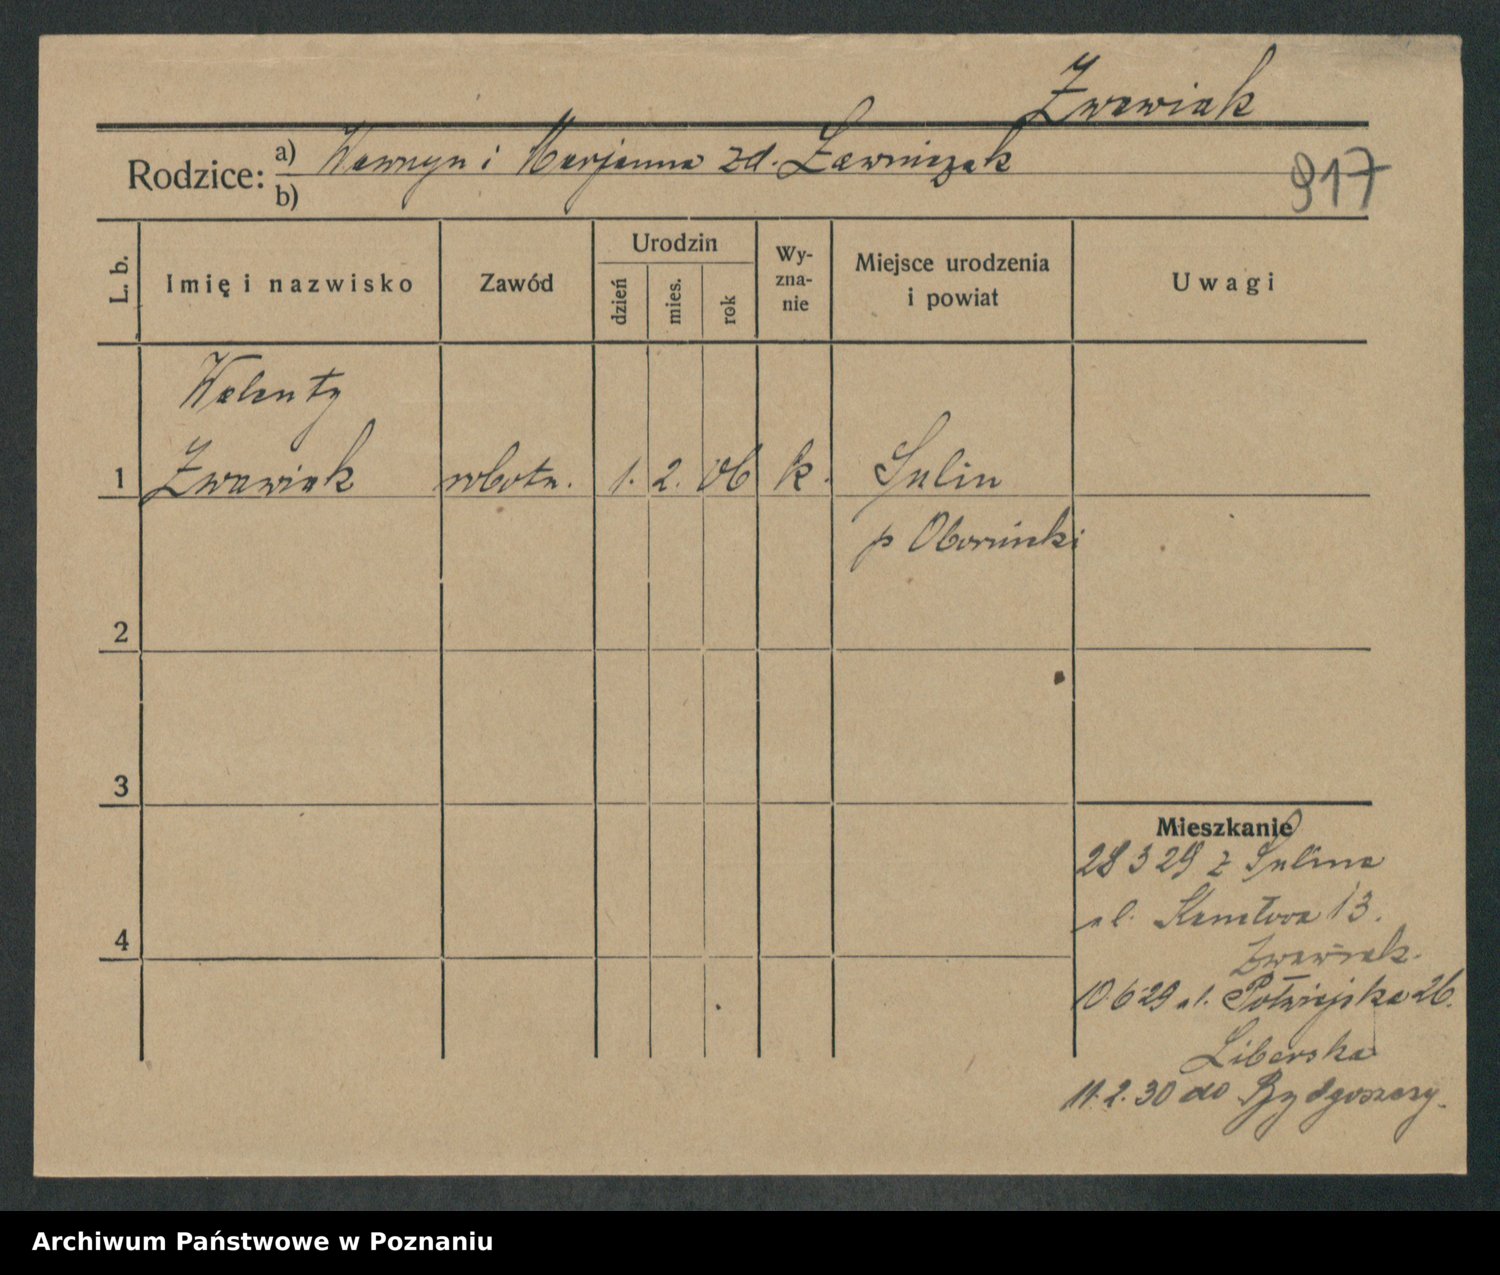 Zwawiak
Rodzice: a) Wawrzyn i Marjanna zd. Ławniczak
b)
917
L. b.
Imię i nazwisko
Zawód
Urodzin
dzień
mies.
rok
Wy-
zna-
nie
Miejsce urodzenia
i powiat
Uwagi
Walenty
1 Zwawiak robotn. 1. 2. 06 k. Sulin
p Obornicki
2
3
4
Mieszkanie
28 3 29 z Sulina
ul. 13.
Zwawiak.
10 6 29 ul. Półwiejska 26.
Liberska
11.2.30 do Bydgoszczy.
Archiwum Państwowe w Poznaniu